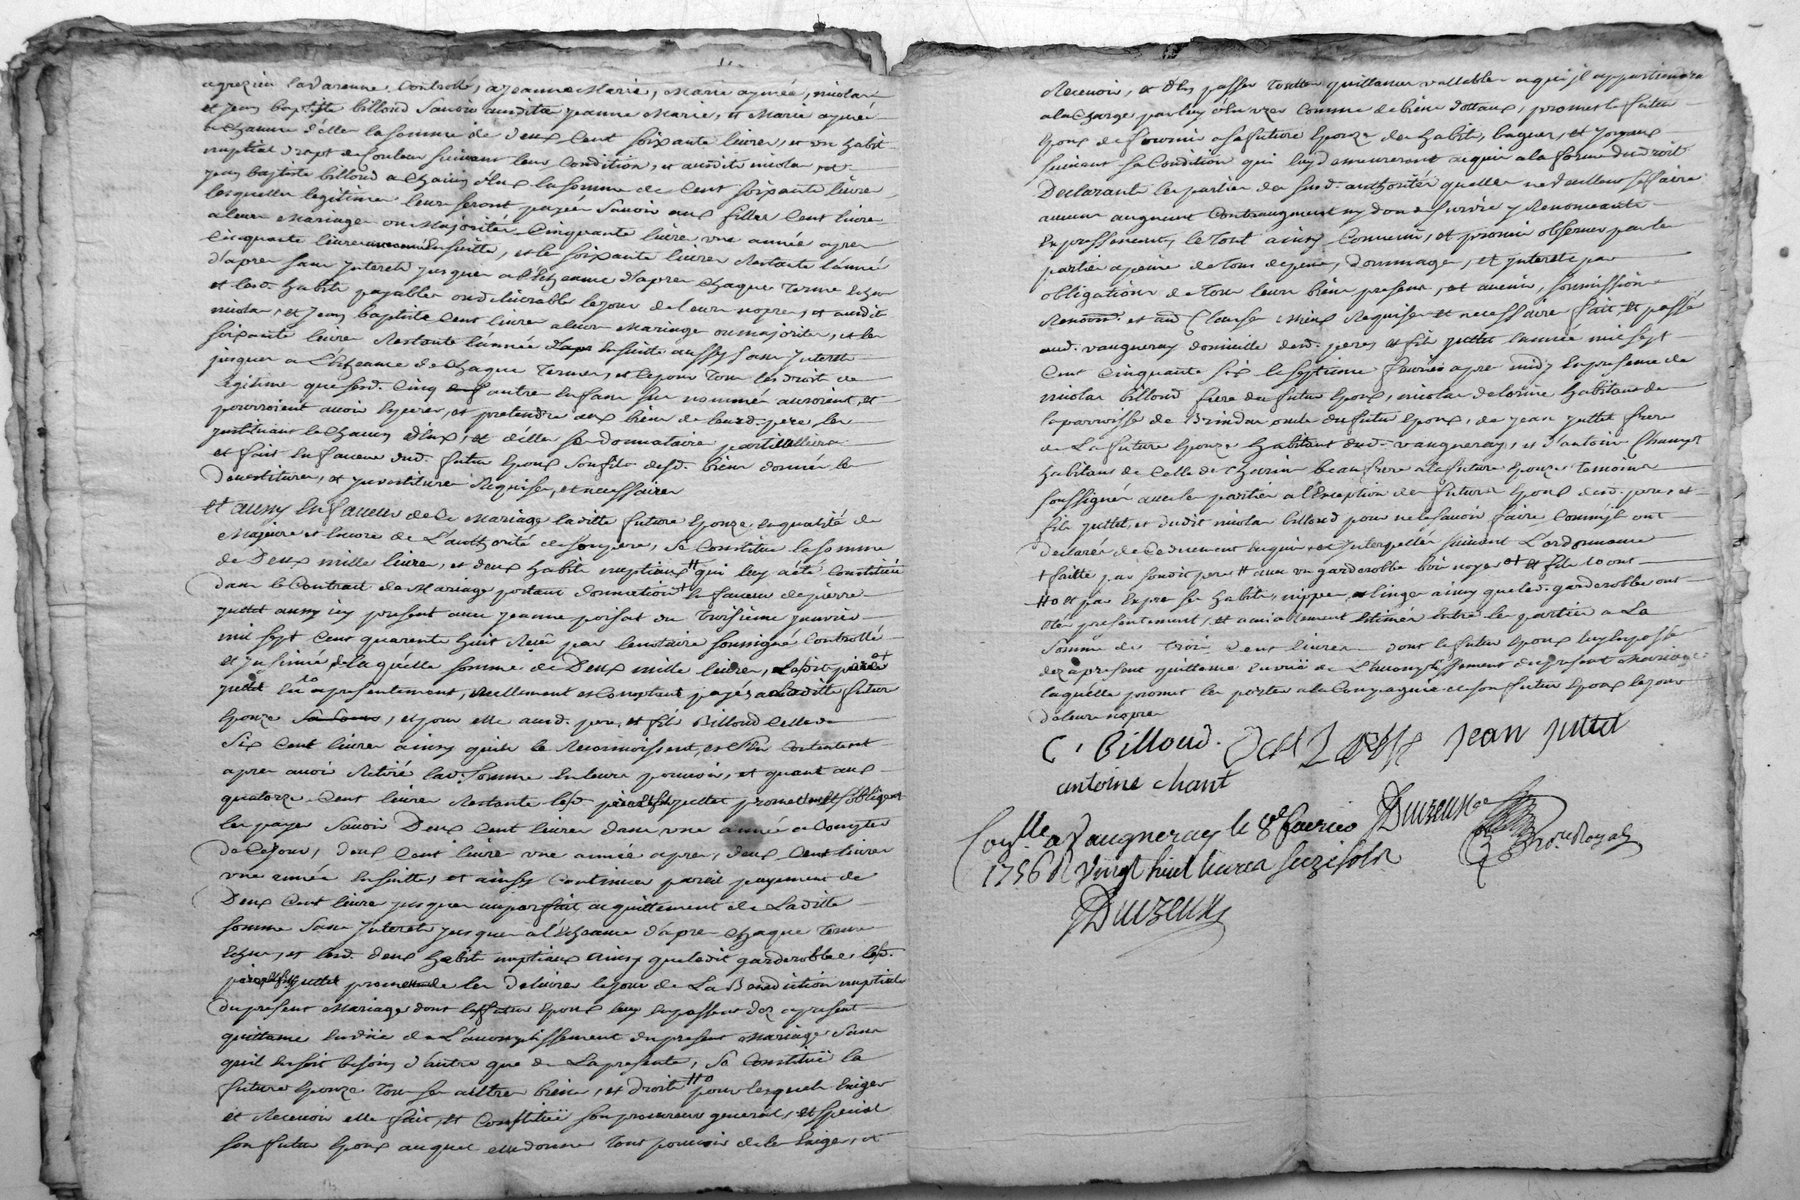 agrezieu lavarenne, Controllé, a jeanne Marie, Marie aymée, nicolas
et jean baptiste billoud Savoir ausdittes jeanne Marie, et Marie aymée
a Chacune d'elles la somme de deux Cent soixante livres, et un habit
nuptial drapt de Couleur suivant leur Condition, et ausdits nicolas et
jean baptiste billoud a Chacun d'eux la somme de Cent soixante livres
lesquelles legitimes leur seront payées Savoir aux filles Cent livres
a leur Mariage ou Majorité, Cinquante livres une année apres
Cinquante livres ensuitte, et les soixante livres Restante l'année
d'apres sans jnterets jusques a l'Echeance d'apres Chaque terme Echeu
et lesd. habits payables ou delivrables le jour de leurs nopces, et ausdit
nicolas, et jean baptiste Cent livres a leur Mariage ou majorité, et les
soixante livres Restante l'année ensuitte aussy sans jnterets
jusques a l'Echeance de Chaque terme, et ce pour tous les droits de
legitime que sesd. Cinq autres Enfans sus nommés auroient, et
pourroient avoir Esperer, et pretendre aux biens de leurd. pere les
justituant Chacun d'Eux, et d'elles ses donnataires particulliers
et fait En faveur dud. futur Epoux son fils desd. biens donnés les
devestitures, et jnvestitures Requises, et necessaires
Et aussy En faveur de Ce Mariage laditte future Epouze En qualité de
Majeure et Encore de L'authorité de son pere, Se Constitue la somme
de Deux mille livres, et deux habits nuptiaux # qui luy a été Constituée
dans le Contract de Mariage portant donnation + En faveur de pierre
juttet aussy icy present avec jeanne poisat du troisieme janvier
mil sept Cent quarente huit Reçû par le nottaire soussigné Controllé
et jnsinué de laquelle somme de Deux mille livres, lesdits pere et
juttet En a presentement, Reellement et Comptant payés a Laditte future
Epouze, et pour elle aud. pere, et fils Billoud Celle de
Six Cent livres ainsy qu'ils le Reconnoissent, et s'En Contentent
apres avoir Retiré lad. somme En leurs pouvoir, et quant aux
quatorze Cent livres Restante lesd. pere et fils juttet promettent et s'obligent
les payer Savoir Deux Cent livres dans une année a Compter
de Cejour, deux Cent livres une année apres, deux Cent livres
une année Ensuitte, et ainsy Continuer pareil payement de
Deux Cent livres jusques au parfait acquittement de Laditte
somme Sans jnterets jusques a l'Echeance d'apres Chaque terme
Echeu, et lesd. deux habits nuptiaux ainsy que ledit garderobbe lesd.
pere et fils juttet promettent de les delivrer le jour de La Benediction nuptiale
du present Mariage dont lesd. futur Epoux leur En passent dez a present
quittance En vüe de L'accomplissement du present Mariage Sans
qu'il En soit besoin d'autre que de La presente, Se Constituë la
future Epouze tous ses autres biens, et droits #o pour lesquels Exiger
et Recevoir elle fait, et Constituë son procureur general, et special
son futur Epoux auquel elle donne tout pouvoir de les Exiger, et
Recevoir, et d'En passer toutes quittances vallables a qui jl appartiendra
a la Charge par luy d'En uzer Comme de biens dottaux, promet le futur
Epoux de fournir a sa future Epouze des habits, bagues, et joyaux
suivant sa Condition qui luy demeureront acquis a la forme du droit
Declarants les parties des susd. authorités quelles ne veullent se faire
aucuns augment Contraugment ny don de survie y Renonceants
Expressement, le tout ainsy Convenu, et promis observer par les
parties a peine de tous depens, dommages, et jnterets par
obligation de tous leurs biens presents, et avenir, soumissions
Renonn. et autres Clauses Requises et necessaires fait, et passé
aud. vaugneray domicille desd. pere et fils juttet l'année mil sept
Cent Cinquante six le septieme fevrier apres midy En presence de
nicolas billoud frere du futur Epoux, nicolas delorme habitant de
la parroisse de Brindas oncle du futur Epoux, de jean juttet frere
de La future Epouze habitant dud. vaugneray, et d'antoine Chant
habitant de Celle de Charin beaufrere a la future Epouze temoins
soussignés avec les parties a l'Exception des futurs Epoux desd. pere, et
fils juttet, et dudit nicolas billoud pour ne le savoir faire Comm'ils ont
declarés de Ce deument Enquis, et jnterpellés suivant L'ordonnance
+ faitte par sondit pere # avec un garderobbe bois noyer et fils to ont
#o et par Expres ses habits, nippes, et linges ainsy que led. garderobbe ont
étés presentement, et amiablement Estimés Entre les parties a La
somme de trois Cent livres dont le futur Epoux luy En passe
dez a present quittance En vuë de L'accomplissement du present Mariage
laquelle promet les porter a la Compagnie de son futur Epoux le jour
de leurs nopces
C. Billoud. Jean juttet
antoine chant
Duizeux
No. Royal
Con.lle a Vaugneray le 8e fevrier
1756 R vingt huit livres seize sols
Duizeux